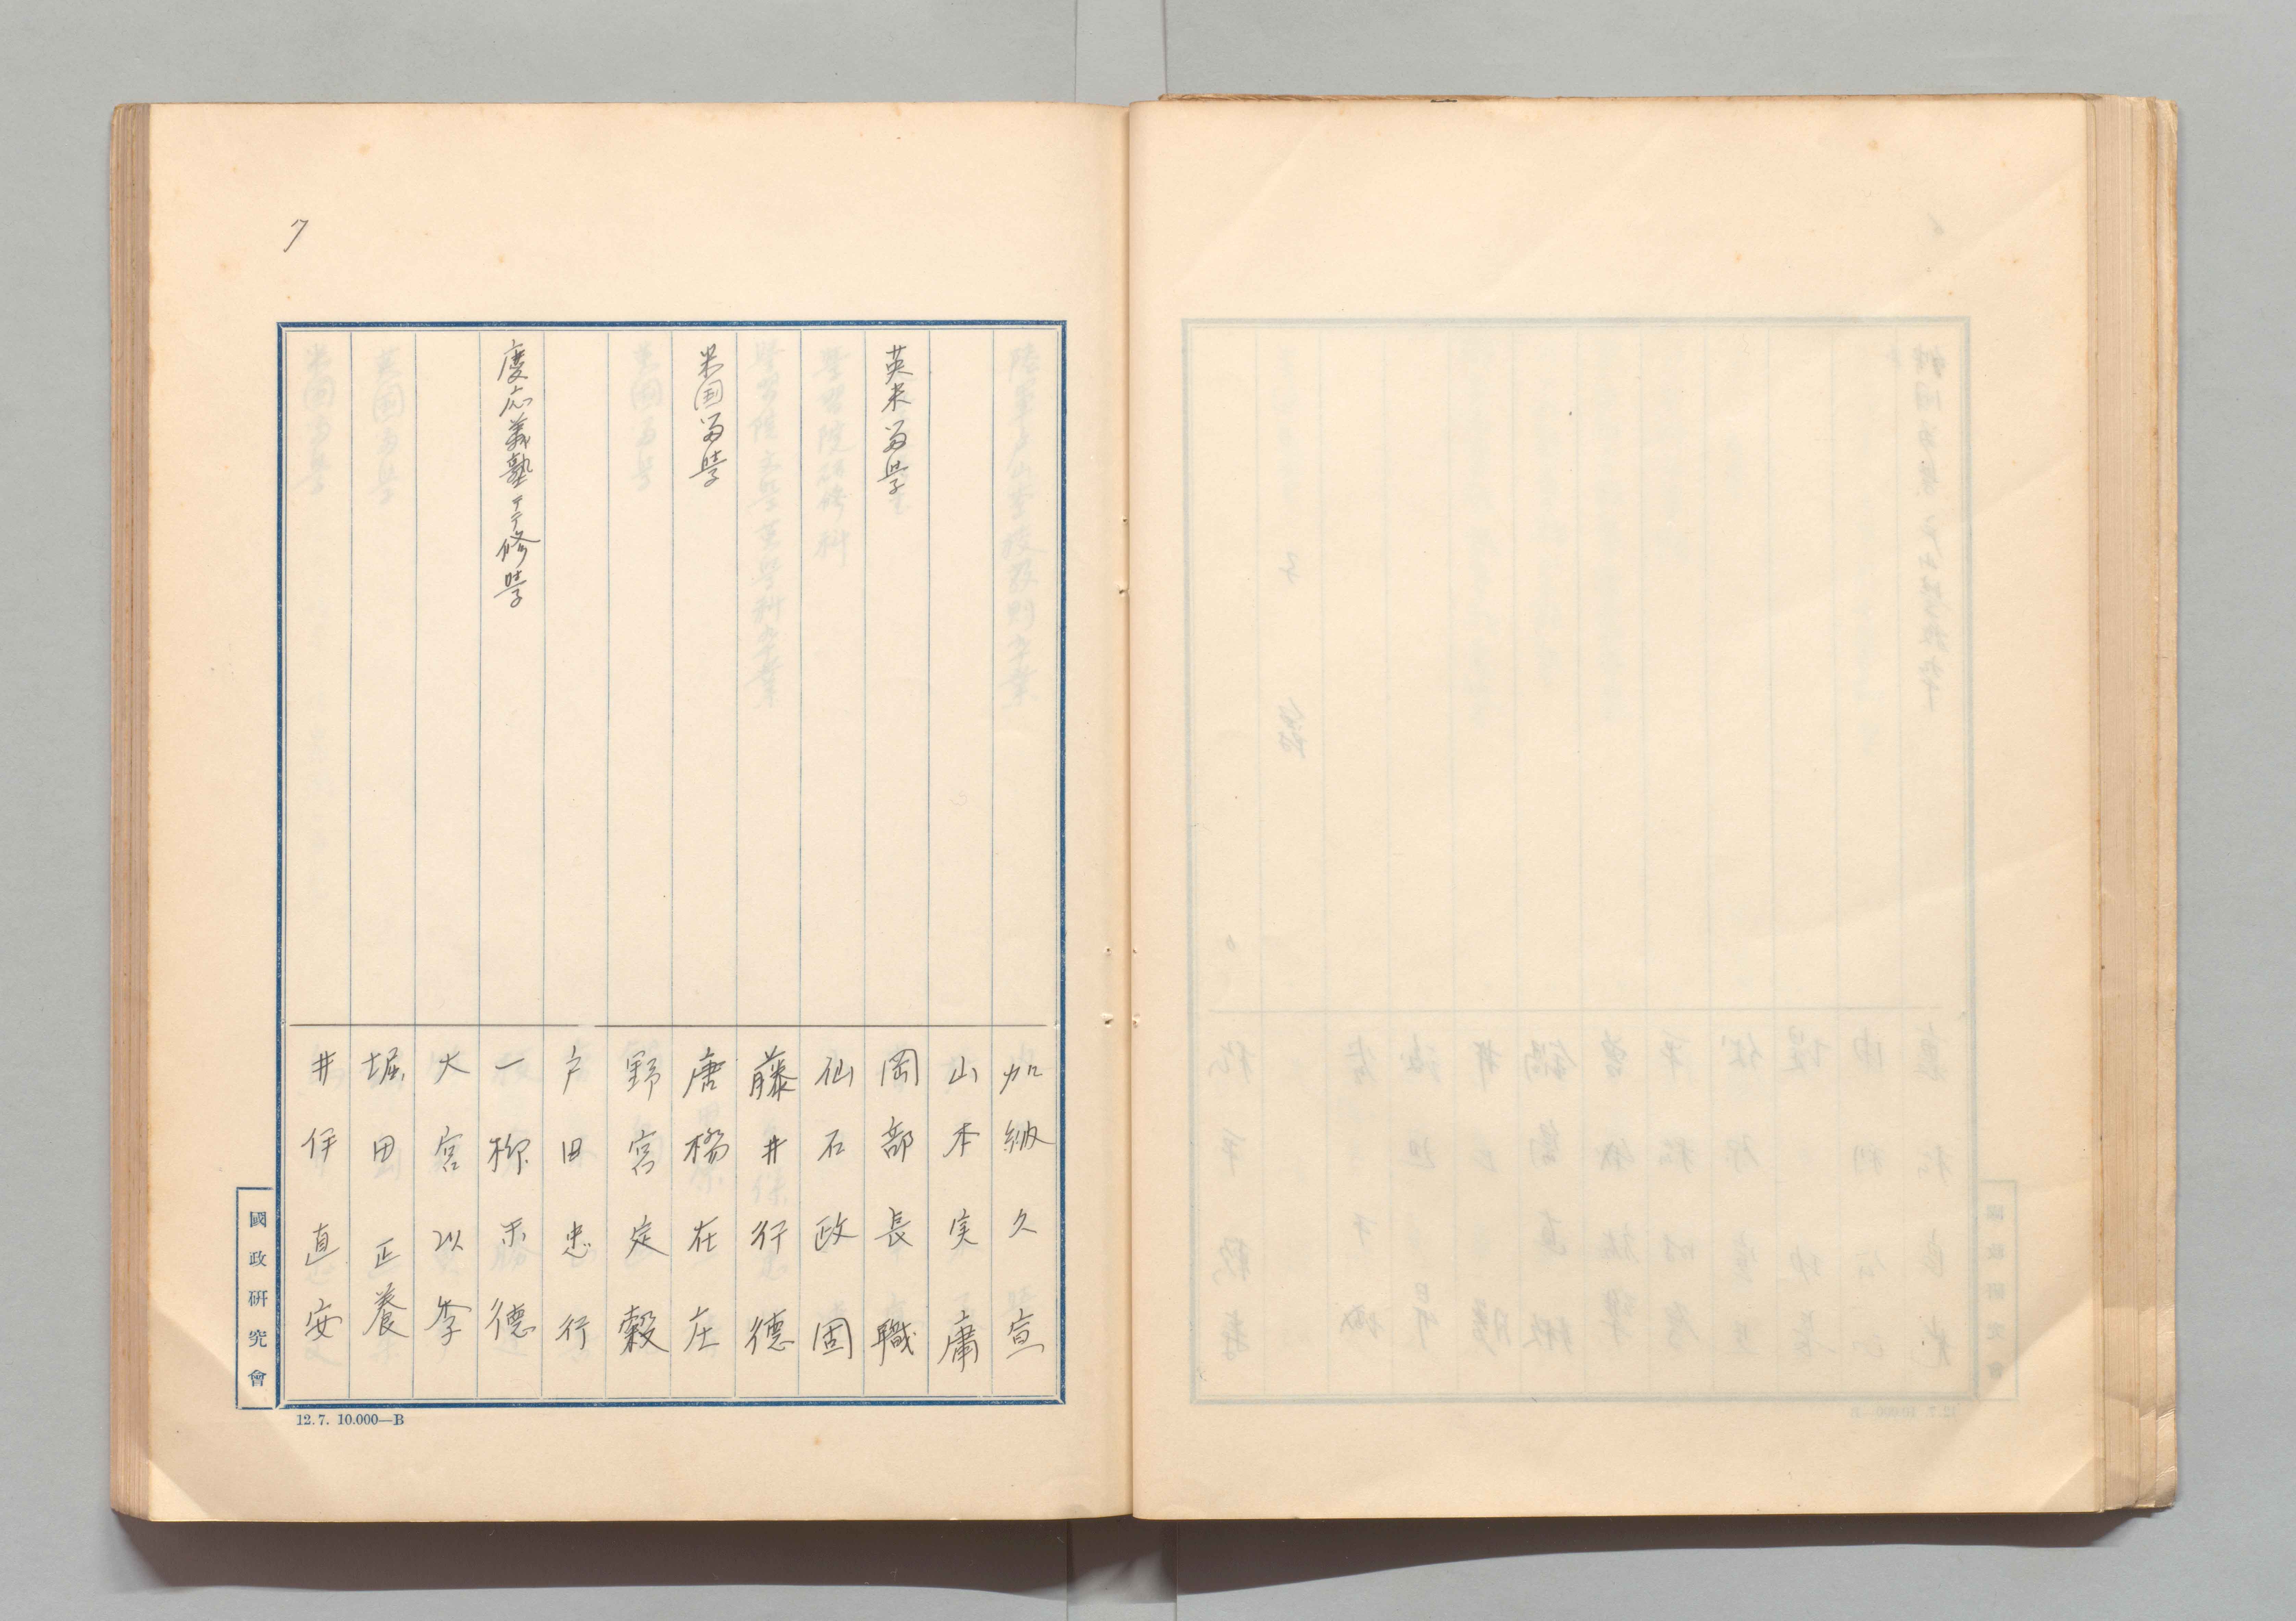 7
加納久宣
山本実庸
英米留学 岡部長職
仙石政固
藤井行德
米国留学 唐橋在庄
野宮定穀
戸田忠行
慶応義塾ニテ修学 一柳末德
大宮以季
堀田正養
井伊直安
國政研究會
12.7. 10.000—B